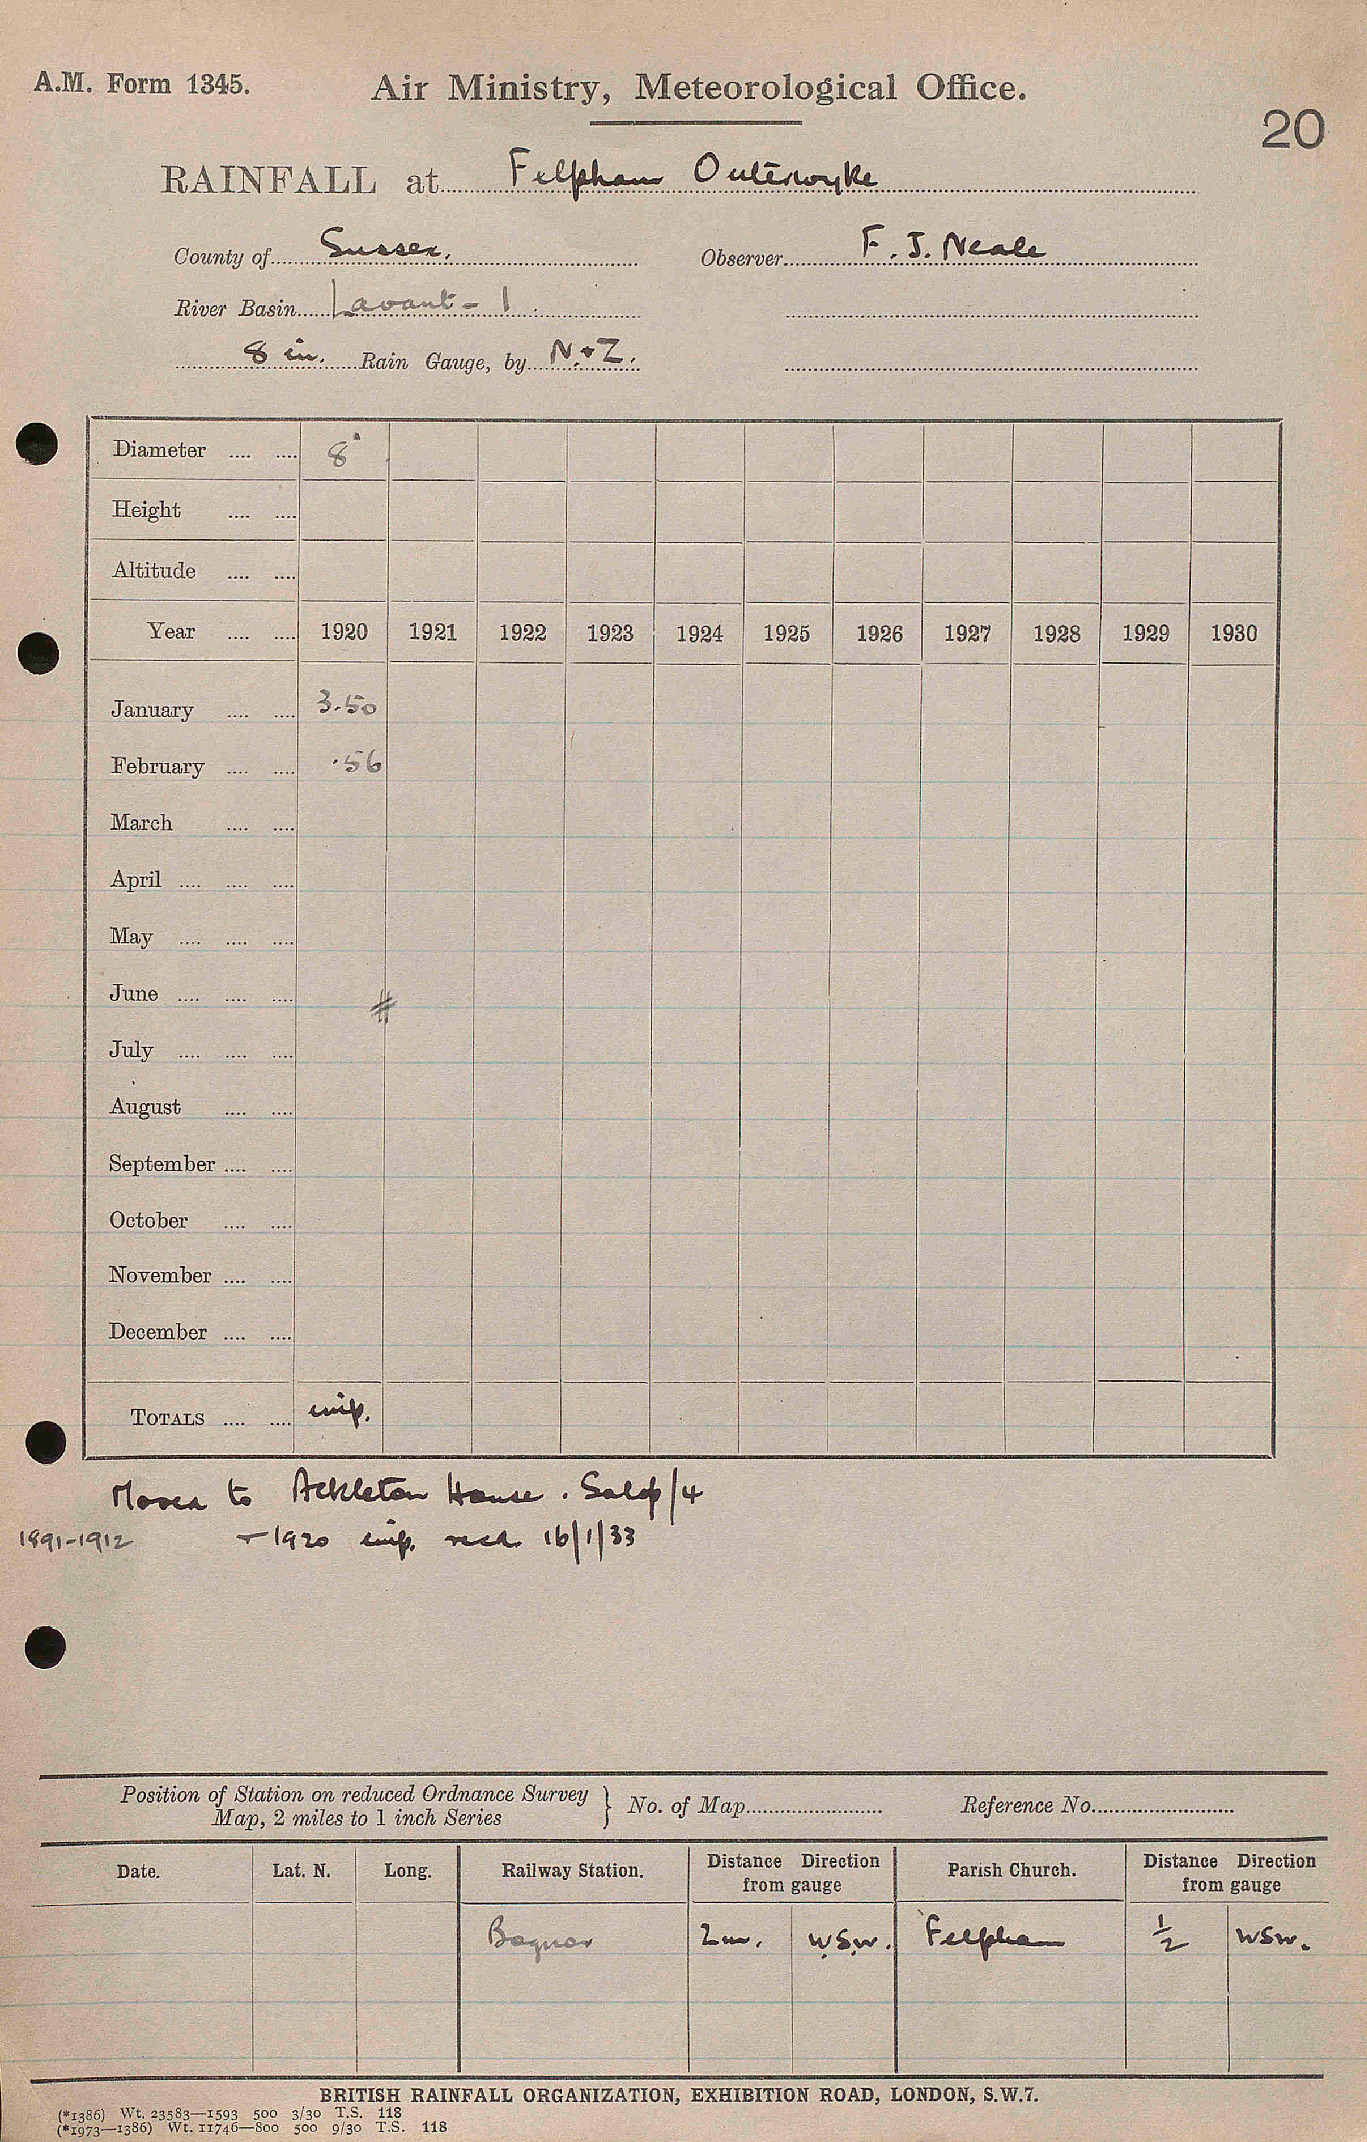 A.M. Form 1345. Air Ministry, Meteorological Office.
20
RAINFALL at Felpham Outerwyke
County of Sussex. Observer F. J. Neale
River Basin Lavant - 1
8 in. Rain Gauge, by N. + Z.
Diameter .... .... 8"
Height .... ....
Altitude .... ....
Year .... .... 1920 1921 1922 1923 1924 1925 1926 1927 1928 1929 1930
January .... .... 3.50
February .... .... .56
March .... ....
April .... .... ....
May .... .... ....
June .... .... ....
#
July .... .... ....
August .... ....
September .... ....
October .... ....
November .... ....
December .... ....
TOTALS .... .... imp.
Moved to Ackleton House. Salop/4
1891-1912 - 1920 imp. recd. 16/1/33
Position of Station on reduced Ordnance Survey Map, 2 miles to 1 inch Series } No. of Map Reference No.
Date. Lat. N. Long. Railway Station. Distance Direction from gauge Parish Church. Distance Direction from gauge
Bognor 2 m. W.S.W. Felpham 1/2 WSW.
BRITISH RAINFALL ORGANIZATION, EXHIBITION ROAD, LONDON, S.W.7.
(*1386) Wt. 23583—1593 500 3/30 T.S. 118
(*1973—1386) Wt. 11746—800 500 9/30 T.S. 118